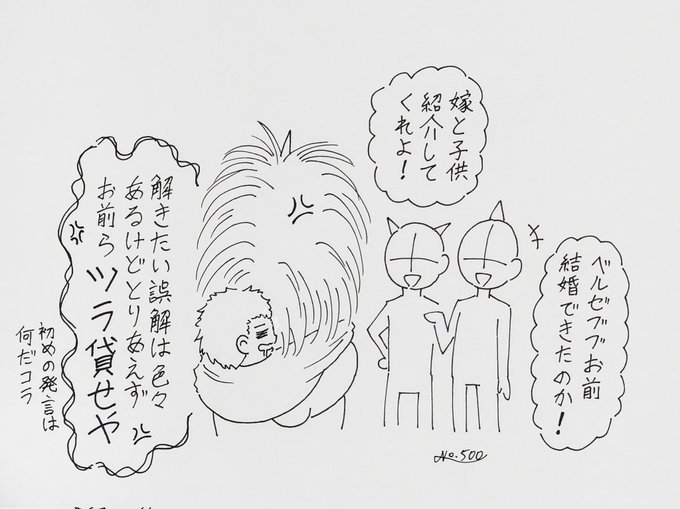 ベルゼブブお前
結婚できたのか!
嫁と子供
紹介して
くれよ!
解きたい誤解は色々
あるけどとりあえず
お前らツラ貸せや
初めの発言は
何だコラ
No.500